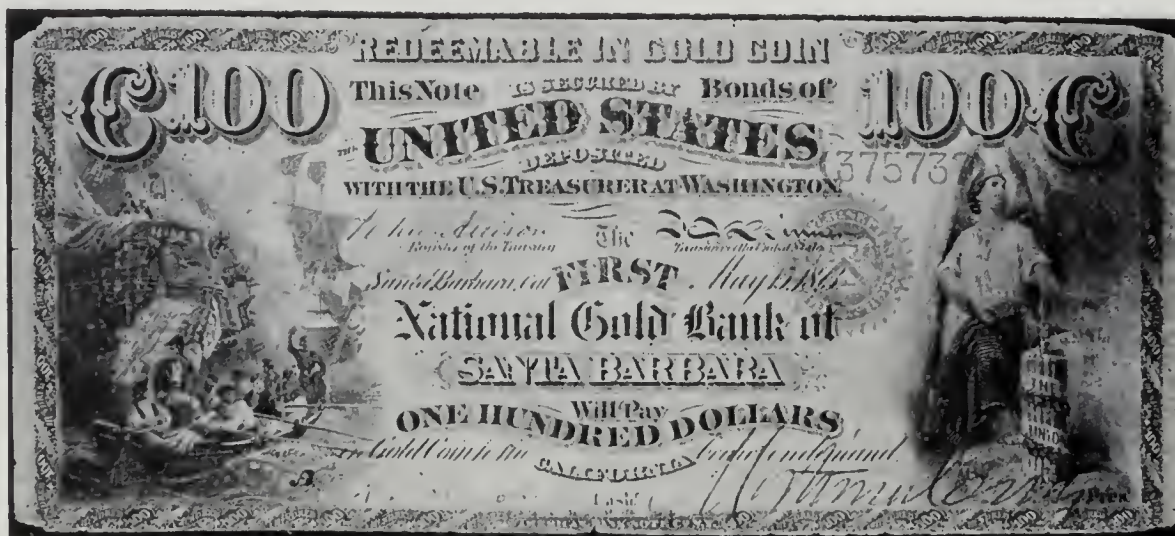 REDEEMABLE IN GOLD COIN
C100 100C
This Note IS SECURED BY Bonds of
THE UNITED STATES
DEPOSITED
375737
WITH THE U.S. TREASURER AT WASHINGTON
John Allison
Register of the Treasury The Treasurer of the United States
Santa Barbara, Cal FIRST May
National Gold Bank of
SANTA BARBARA
Will Pay
ONE HUNDRED DOLLARS
in Gold Coin to the bearer on demand
CALIFORNIA
A
Cash. Pres.
MAIN
THE
UNION